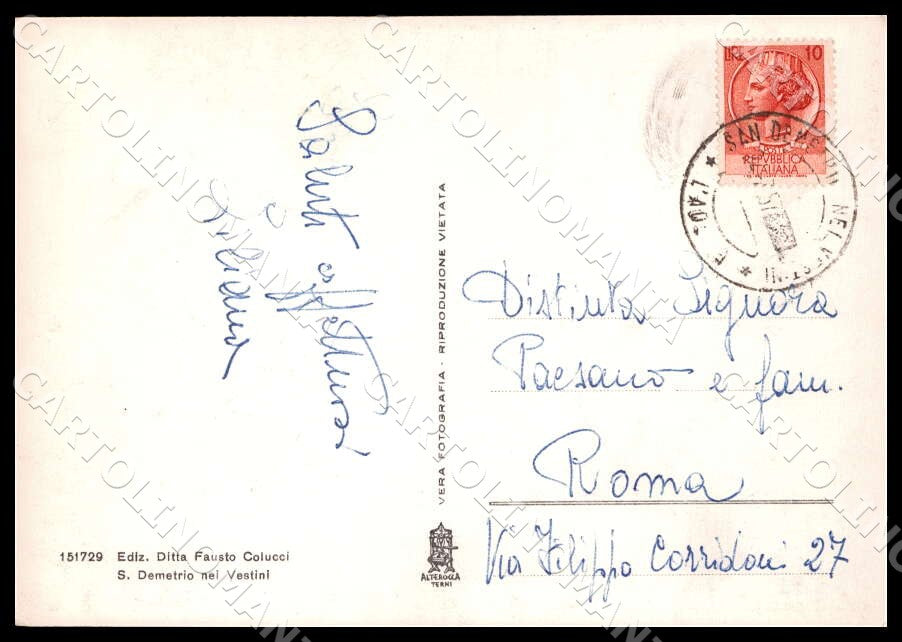 LIRE 10
POSTE
REPVBBLICA
ITALIANA
SAN DEMETRIO NEI VESTINI
Saluti affettuosi
VERA FOTOGRAFIA - RIPRODUZIONE VIETATA
Distinta Signora
Paesano e fam.
Roma
Via Filippo Corridoni 27
151729 Ediz. Ditta Fausto Colucci
S. Demetrio nei Vestini
ALTEROCCA
TERNI
CARTOLINOMANIA